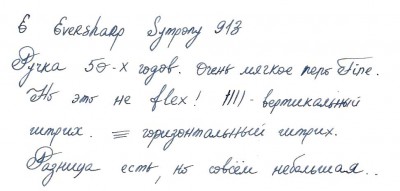 Є Eversharp Sympony 913
Ручка 50-х годов. Очень мягкое перо Fine.
Но это не flex! |||| - вертикальный
штрих. ≡ горизонтальный штрих.
Разница есть, но совсем небольшая..